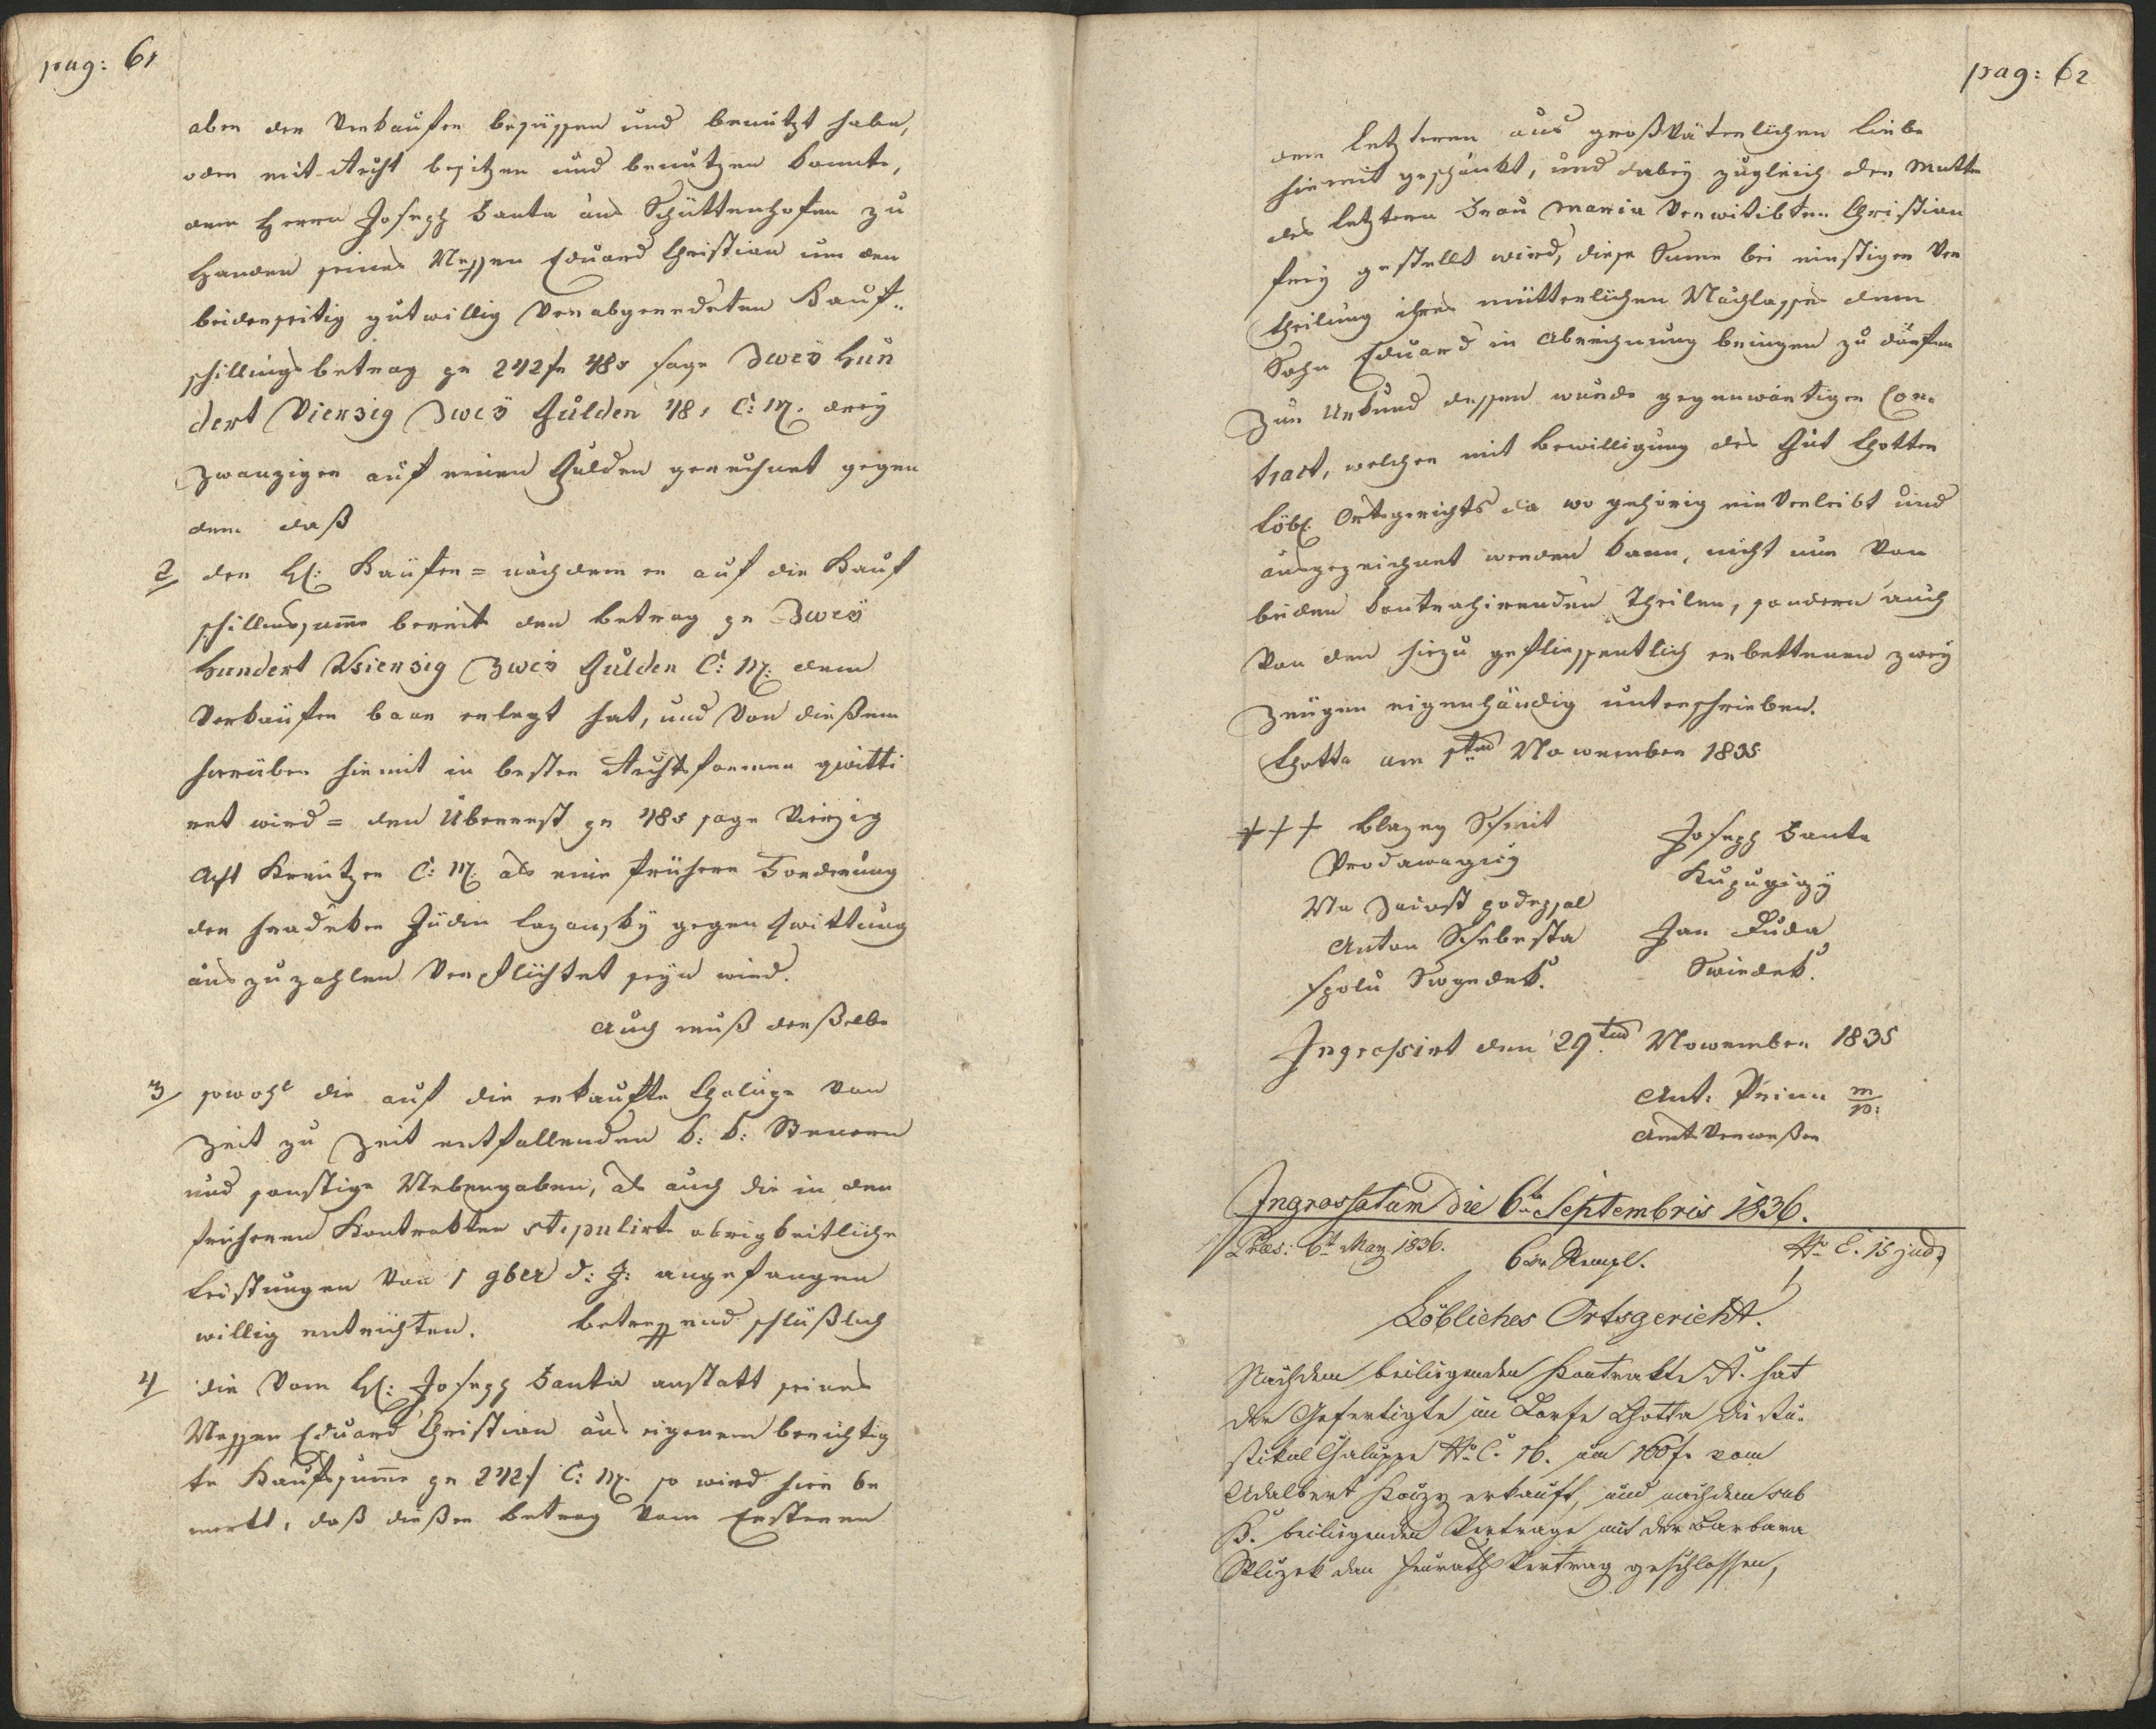 pag: 61
aber der Verkaufer besässen und benützt habe,
oder mit Recht besitzen und benützen konnte,
dem Herrn Joseph Santa aus Schüttenhofen zu
Handen seines Neffen Eduard Christian um den
beiderseitig gutwillig verabgeredeten Kauf„
schillingsbetrag pr 242 fr 48x sage Zweÿ Hun
dert Vierzig Zweÿ Gulden 48x C: M. dreÿ
Zwanziger auf einen Gulden gerechnet gegen
dem daß
2 der H: Käufer = nachdem er auf die Kauf
schillingssumme bereit den Betrag pr Zweÿ
Hundert Vierzig Zweÿ Gulden C: M: dem
Verkäufer baar erlegt hat, und von dießem
hierüber hiemit in bester Rechtsformen qwitti
ret wird = den Überrest pr 48x sage Vierzig
Acht Kreutzer C: M. als eine frühere Forderung
der Jüdin Lazanskÿ gegen Qwittung
auszuzahlen Verpflichtet seÿn wird.
Auch muß derßelbe
3 sowohl die auf die erkaufte Chaluppe von
Zeit zu Zeit entfallenden k: k: Steuern
und sonstige Nebengaben, als auch die in den
früheren Kontrakten stipulirte obrigkeitliche
Leistungen von 1 9ber d: J: angefangen
willig entrichten. Betreffend schlüßlich
4 die vom H: Joseph Santa anstatt seines
Neffen Eduard Christian aus eigenem berichtig
te Kaufsumme pr 242 f C: M. so wird hier be
merkt, daß dießer Betrag vom Ersteren
pag: 62
dem letzteren aus großväterlichen Liebe
hiemit geschänkt, und dabeÿ zugleich der Mutter
des letztern Frau Maria Verwitibten Christian
freÿ gestellt wird, diese Summe bei einstigen Ver
theilung ihres mütterlichen Nachlasses dem
Sohn Eduard in Abrechnung bringen zu dörfen
Zur Urkund dessen wurde gegenwärtiger Con„
tract, welcher mit Bewilligung des Gut Chotter
Löbl. Ortsgerichts da wo gehörig einverleibt und
ausgezeichnet werden kann, nicht nur von
beiden kontrahirenden Theilen, sondern auch
von den hiezu geflissentlich erbettenen zweÿ
Zeügen eigenhändig unterschrieben.
Chotta am 1ten November 1835
+++ Blazey Schmit
Joseph Santa
Prodawagicý
Kupugicý
Na podepsal
Anton Schebesta
Jan Duda
spolu Swedek.
Swedek.
Ingrossirt den 29ten November 1835
Ant: m/p:
Amtsverweßer
Ingrossatum die 6ten Septembris 1836.
Præs: 6t May 1836.
6 xr Stempl.
No E. 15 jud.
Löbliches Ortsgericht.
Nachdem beiliegenden Kontrakte A. hat
der Gefertigte im Dorfe Chotta die Ru„
stikal Chaluppe No C. 16. um 100 f. vom
Adalbert erkauft, und nachdem sub
B. beiliegenden Vertrage mit der Barbara
den Heurathsvertrag geschlossen,